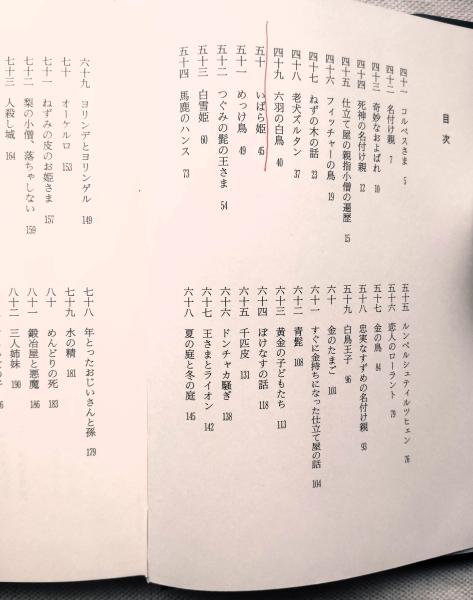 目次
四十一 コルベスさま 5
四十二 名付け親 7
四十三 奇妙なおよばれ 10
四十四 死神の名付け親 12
四十五 仕立て屋の親指小僧の遍歴 15
四十六 フィッチャーの鳥 19
四十七 ねずの木の話 23
四十八 老犬ズルタン 37
四十九 六羽の白鳥 40
五十 いばら姫 45
五十一 めっけ鳥 49
五十二 つぐみの髭の王さま 54
五十三 白雪姫 60
五十四 馬鹿のハンス 73
五十五 ルンペルシュティルツヒェン 76
五十六 恋人のローラント 79
五十七 金の鳥 84
五十八 忠実なすずめの名付け親 93
五十九 白鳥王子 96
六十 金のたまご 101
六十一 すぐに金持ちになった仕立て屋の話 104
六十二 青髭 108
六十三 黄金の子どもたち 113
六十四 ぼけなすの話 118
六十五 千匹皮 131
六十六 ドンチャカ騒ぎ 138
六十七 王さまとライオン 142
六十八 夏の庭と冬の庭 145
六十九 ヨリンデとヨリンゲル 149
七十 オーケルロ 153
七十一 ねずみの皮のお姫さま 157
七十二 梨の小僧、落ちゃしない 159
七十三 人殺し城 164
七十八 年とったおじいさんと孫 179
七十九 水の精 181
八十 めんどりの死 183
八十一 鍛冶屋と悪魔 186
八十二 三人姉妹 190